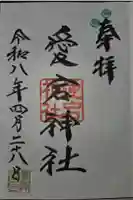 奉拝
愛宕神社
令和八年四月二十八日